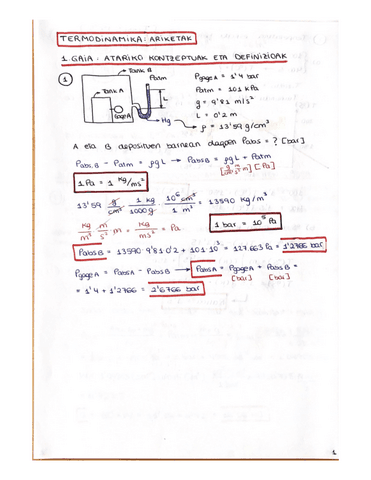 TERMODINAMIKA: ARIKETAK
1. GAIA: ATARIKO KONTZEPTUAK ETA DEFINIZIOAK
1
Tank B
Patm
Tank A
Gage A
Hg
Pgage A = 1'4 bar
Patm = 101 kPa
g = 9'81 m/s²
L = 0'2 m
ρ = 13'59 g/cm³
A eta B deposituen barnean dagoen Pabs = ? [bar]
Pabs.B - Patm = ρgL → Pabs B = ρgL + Patm
1 Pa = 1 kg/ms²
13'59 g/cm³ · 1 kg/1000 g · 10⁶ cm³/1 m³ = 13590 kg/m³
kg/m³ m/s² m = kg/ms² = Pa
1 bar = 10⁵ Pa
Pabs B = 13590 · 9'81 · 0'2 + 101 · 10³ = 127.663 Pa = 1'2766 bar
Pgage A = Pabs A - Pabs B → Pabs A = Pgage A + Pabs B =
[bar] [bar]
= 1'4 + 1'2766 = 2'6766 bar
1